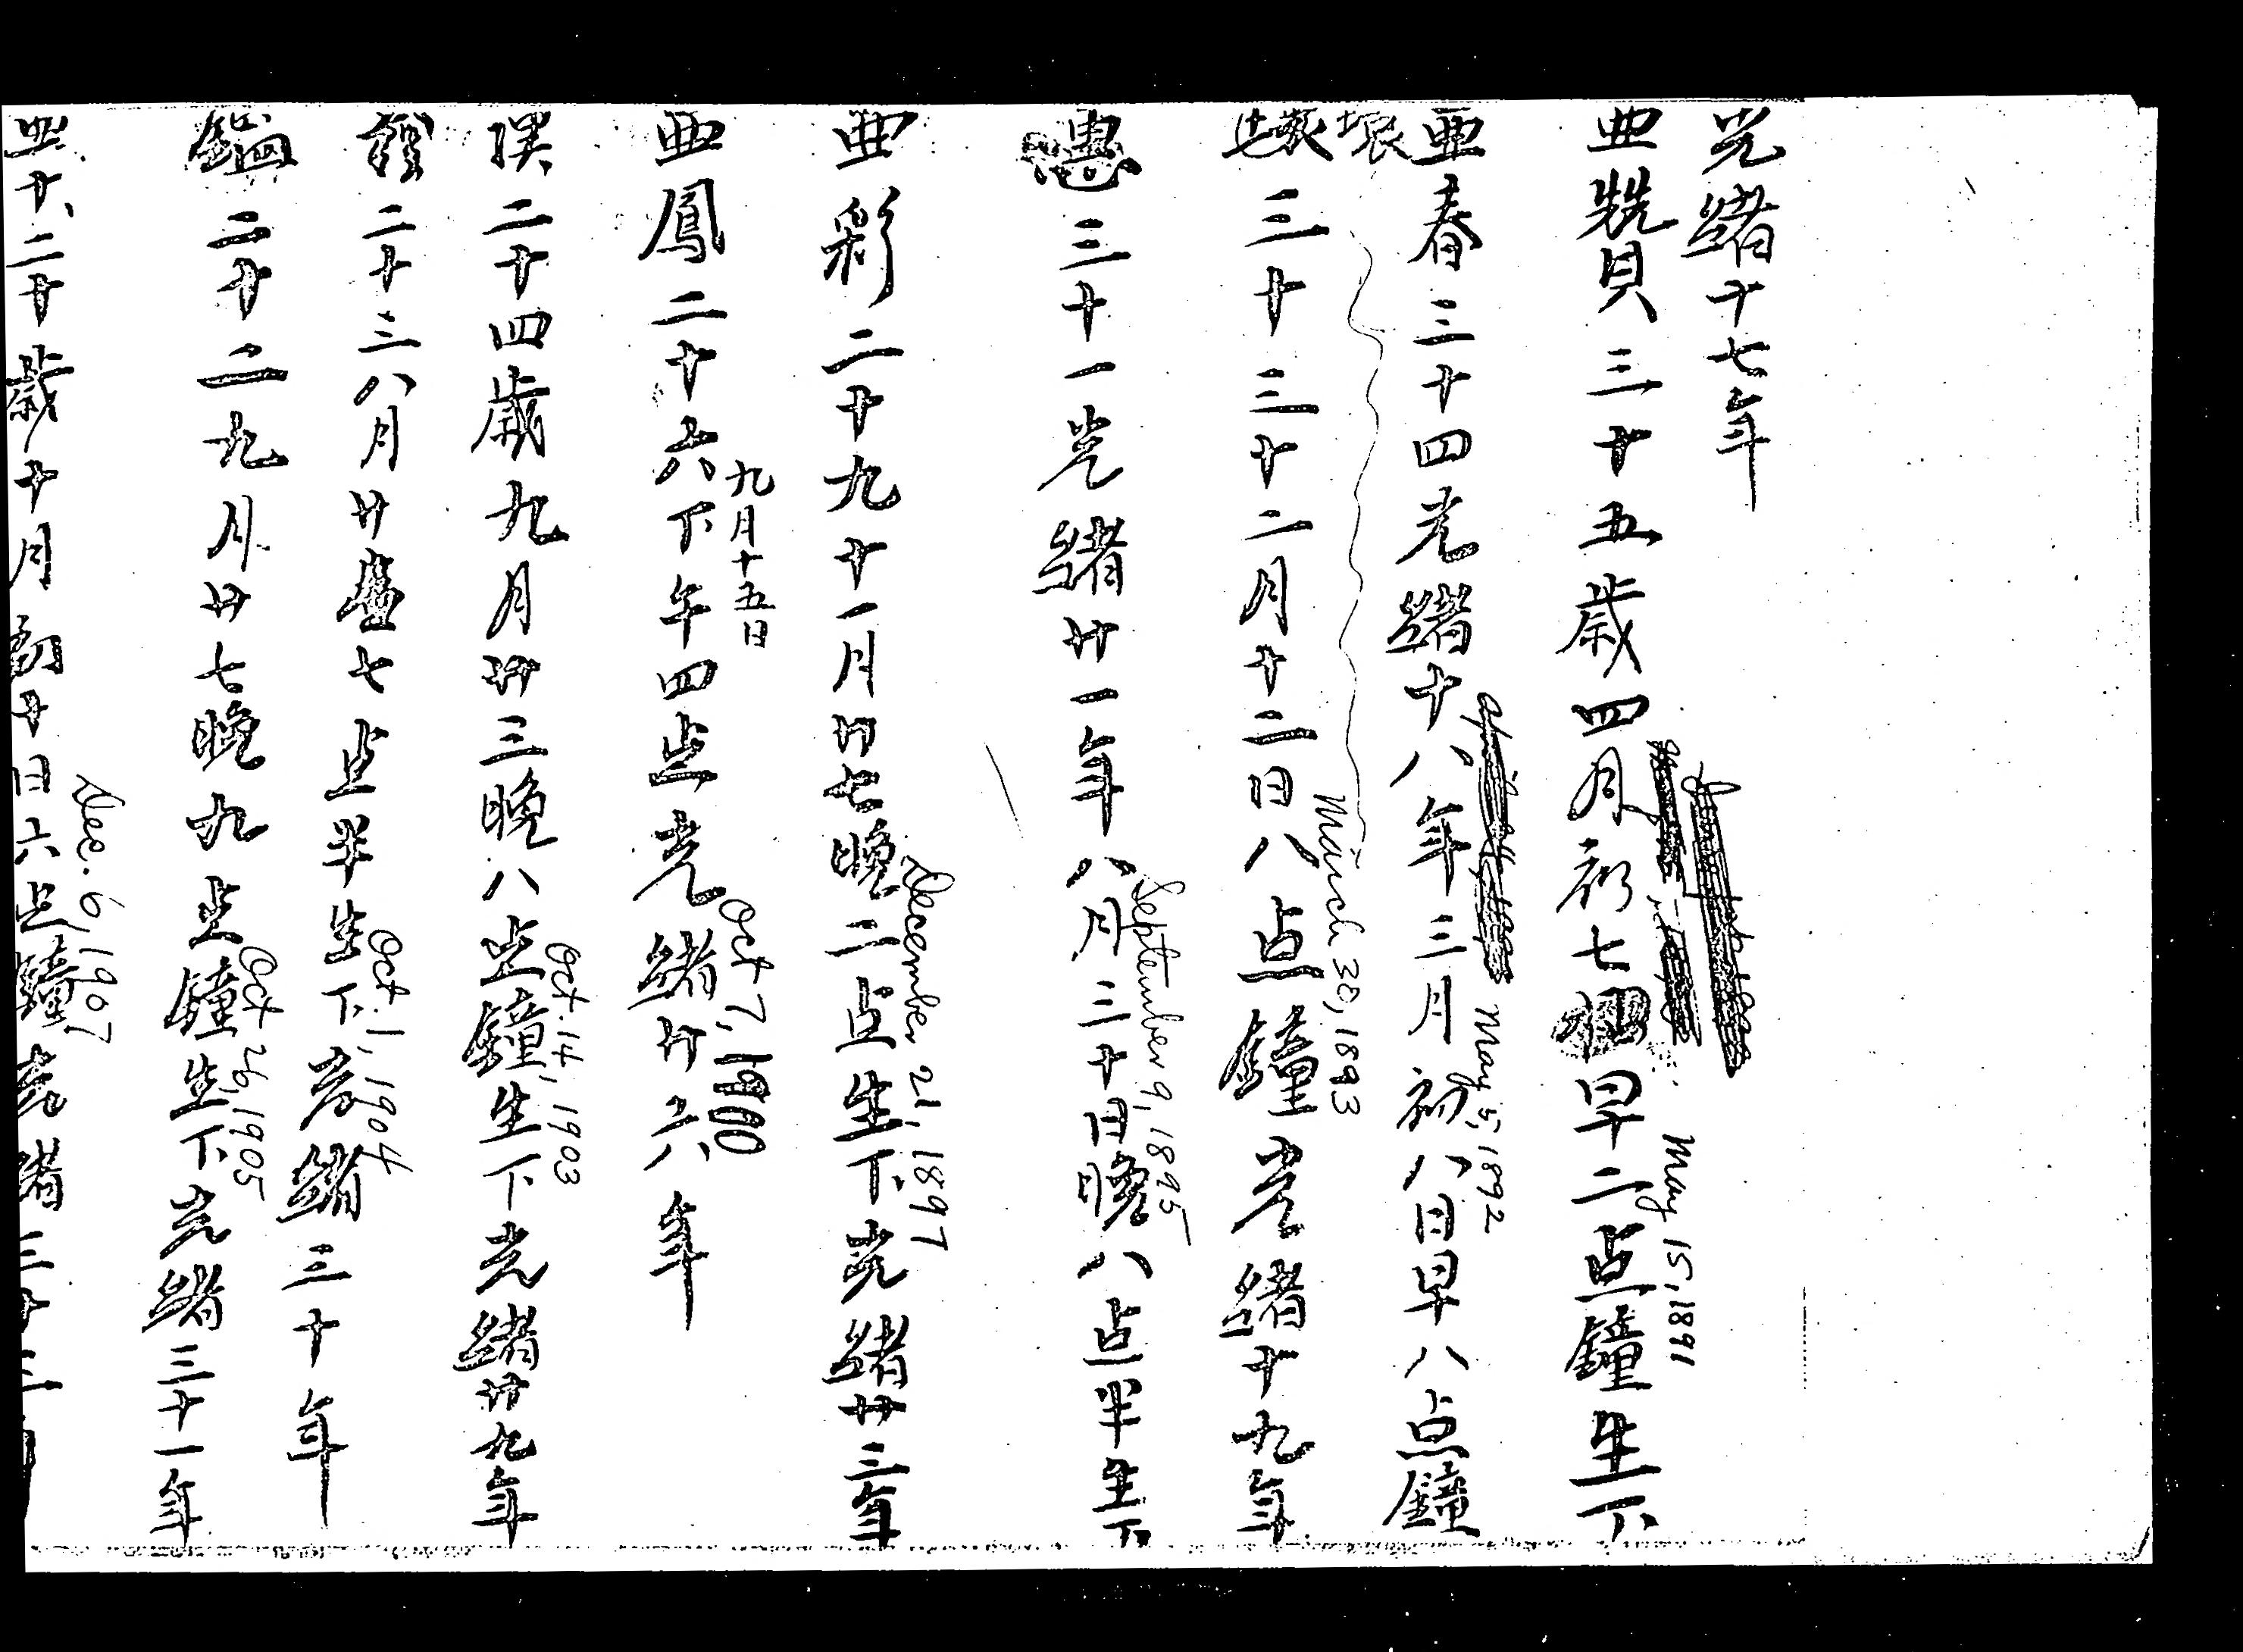 光緒十七年
亜贊三十五歲四月初七早二点鐘生下
May 15, 1891
亜春三十四光緒十八年三月初八日早八点鐘
May 5, 1892
壞
三十三十二月十二日八点鐘光緒十九年
March 30, 1893
三十一光緒廿一年八月三十日晚八点半生下
September 9, 1895
亜彩二十九十一月廿七晚二点生下光緒廿三年
December 21, 1897
九月十五日
亜鳳二十六下午四点光緒廿六年
Oct 7, 1900
二十四歲九月廿三晚八点鐘生下光緒廿九年
Oct. 14, 1903
二十三八月廿七点半生下光緒三十年
Oct. 1, 1904
鑑二十二九月廿七晚九点鐘生下光緒三十一年
Oct 26, 1905
亜十二十歲十月初十日六点鐘光緒三十三年
Dec. 6 1907